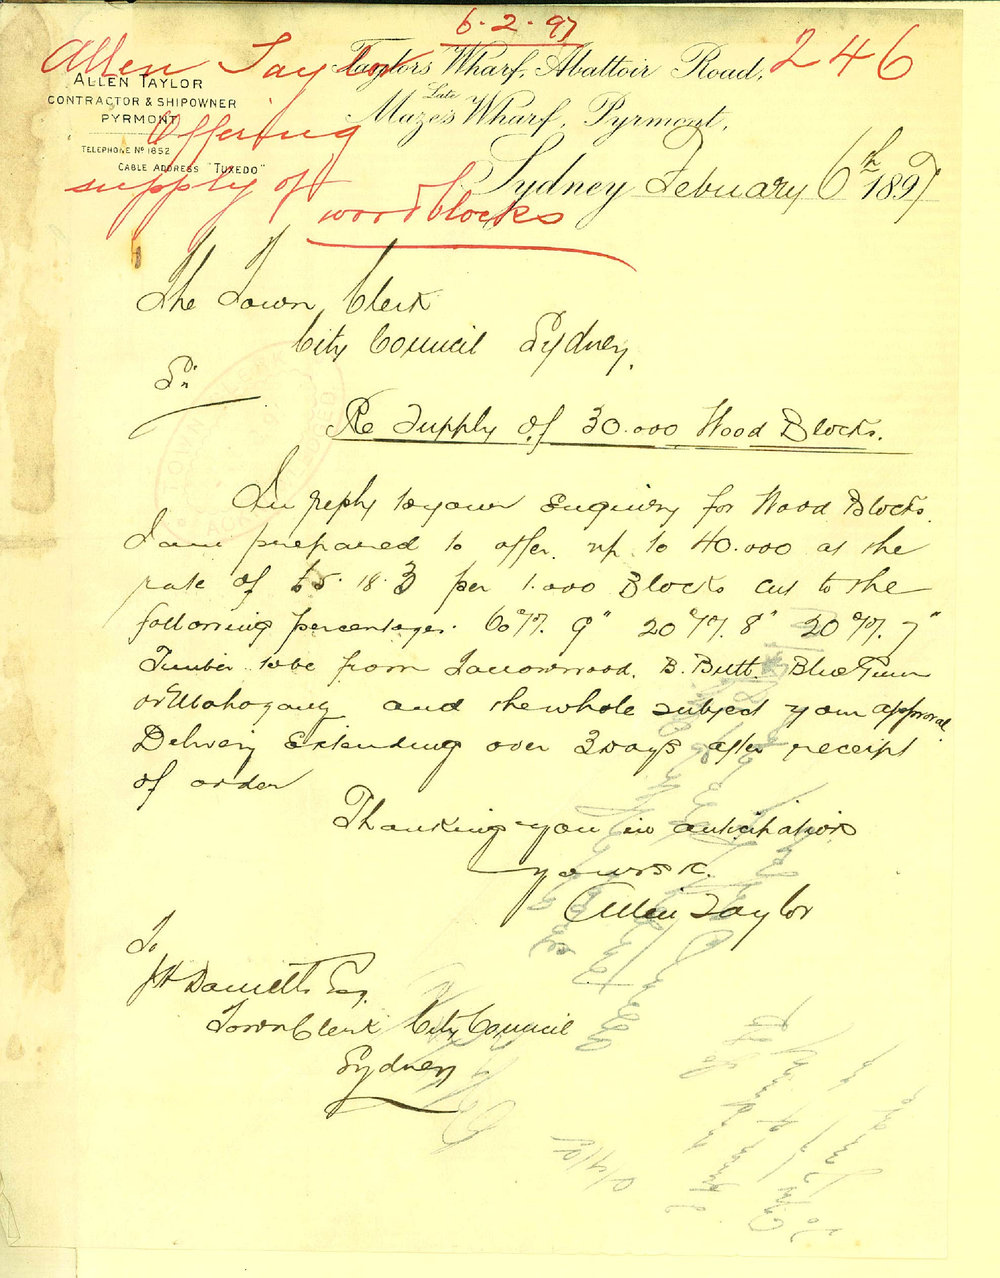 6.2.97
246
Allen Taylor
Offering
supply of
woodblocks
ALLEN TAYLOR
CONTRACTOR & SHIPOWNER
PYRMONT
TELEPHONE No 1852
CABLE ADDRESS "TUXEDO"
Taylors Wharf, Abattoir Road,
Late
Maze's Wharf, Pyrmont,
Sydney Febuary 6th 1897
The Town Clerk
City Council Sydney.
Sir
Re Supply of 30.000 Wood Blocks.
In reply to your Enquiry for Wood Blocks.
I am prepared to offer up to 40.000 at the
rate of £5.18.3 per 1.000 Blocks cut to the
following percentages. 60% 9" 20% 8" 20% 7"
Timber to be from Tallowwood, B. Butt. Blue Gum
or Mahogany and the whole subject your approval
Delivery Extending over 3 Days after receipt
of order
Thanking you in anticipation
yours &c.
Allen Taylor
To
Esq.
Town Clerk City Council
Sydney